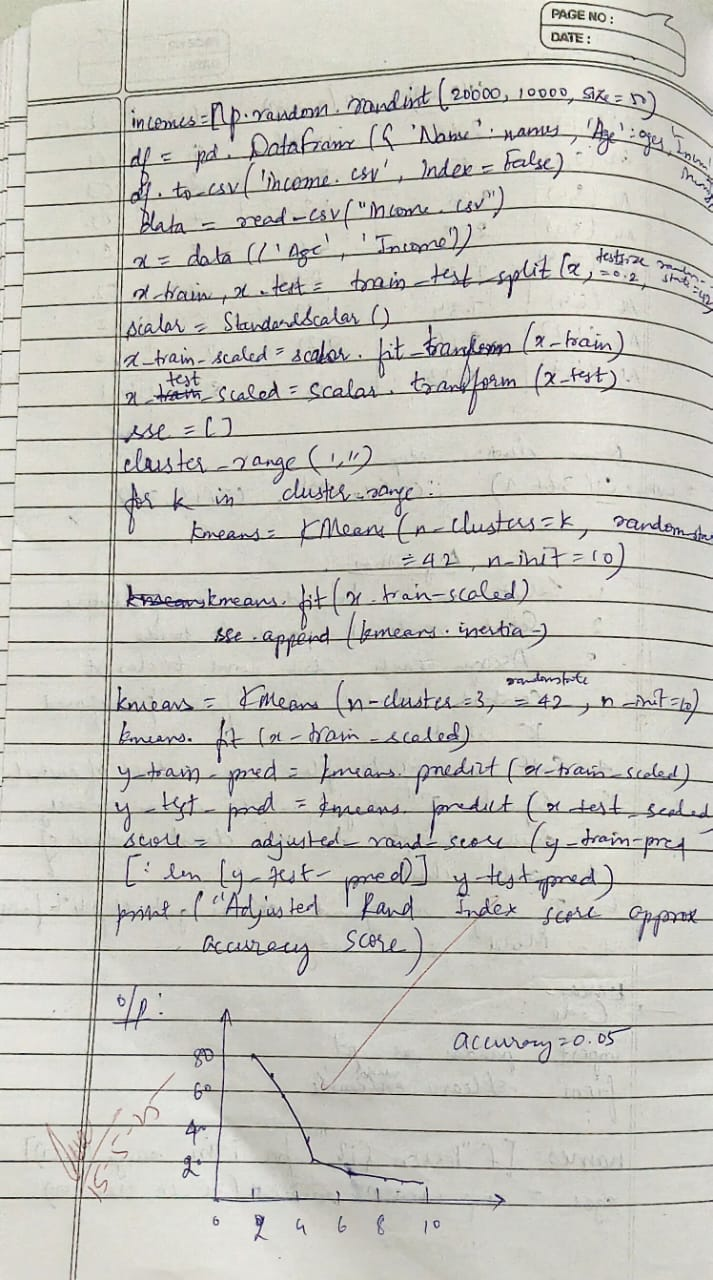 PAGE NO :
DATE :
incomes = np.random.randint (20000, 10000, size = 50)
df = pd. DataFrame ({ 'Name' : names, 'Age' : ages,
df. to_csv ('income. csv', Index = False)
data = read-csv ("income. csv")
x = data (['Age', 'Income'])
x-train, x-test = train_test_split (x, testsize = 0.2, random state = 42
scalar = StandardScalar ()
x_train_scaled = scalar. fit_transform (x-train)
x_test_scaled = scalar. transform (x-test)
sse = []
cluster_range (1,11)
for k in cluster_range :
kmeans = KMeans (n-clusters = k, random sta
= 42, n-init = 10)
kmeans. fit (x-train-scaled)
sse. append (kmeans. inertia-)
kmeans = KMeans (n-cluster = 3, randomstate = 42, n-init = 10)
kmeans. fit (x-train-scaled)
y-train-pred = kmeans. predict (x-train-scaled)
y-test-pred = kmeans. predict (x-test-scaled
score = adjusted_rand_score (y-train-pred
[: len (y-test-pred)] y-test-pred)
print ("Adjusted Rand Index score approx
accuracy score)
o/p :
accuracy = 0.05
80
60
40
20
0 2 4 6 8 10
15-5-25